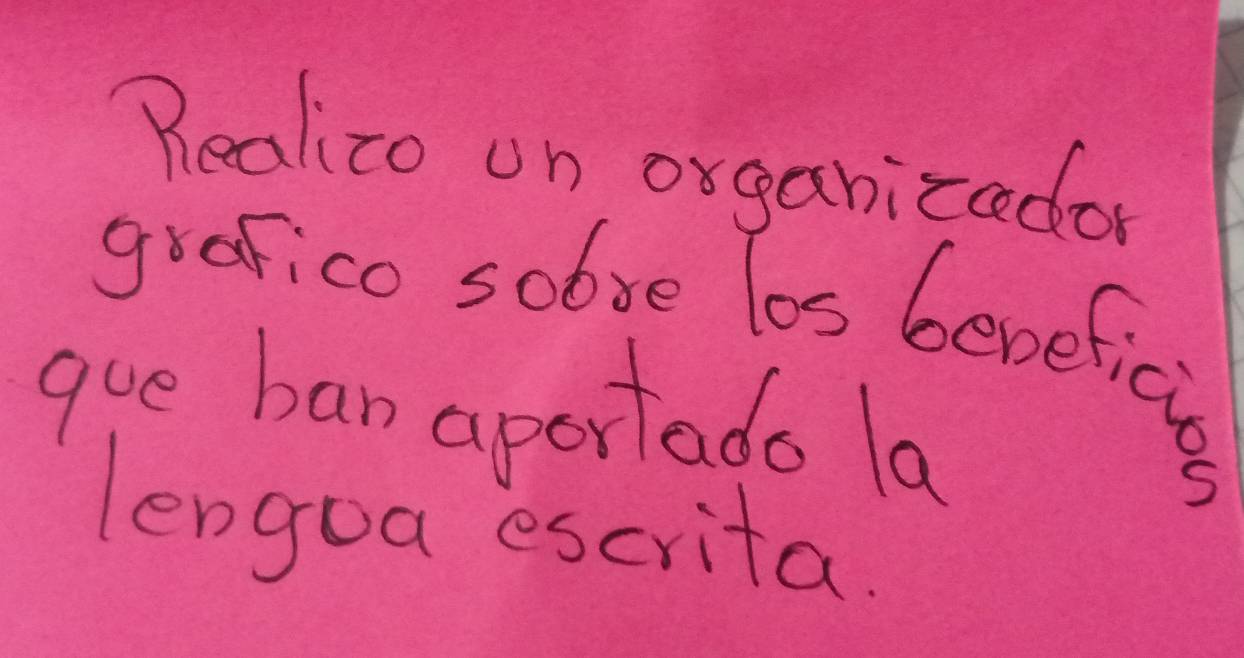 Realizo un organizador
grafico sobre los beneficios
que han aportado la
lengua escrita.